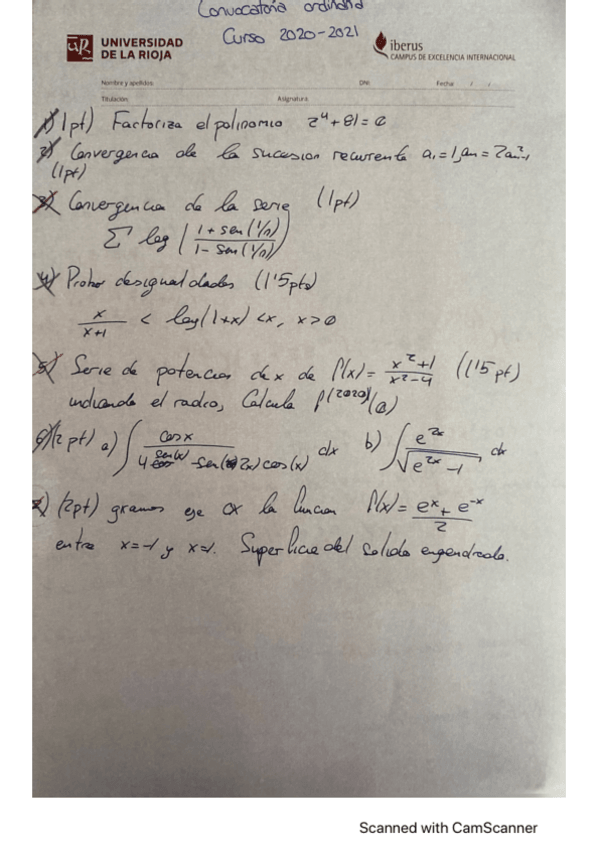 Convocatoria ordinaria
Curso 2020-2021
UR UNIVERSIDAD DE LA RIOJA
iberus
CAMPUS DE EXCELENCIA INTERNACIONAL
Nombre y apellidos DNI Fecha / /
Titulación Asignatura
1) 1pt) Factoriza el polinomio z⁴+81=0
2) Convergencia de la sucesion recurrente a₁=1, aₙ=2a²ₙ₋₁
(1pt)
3) Convergencia de la serie (1pt)
Σ log((1+sen(1/n))/(1-sen(1/n)))
4) Probar desigualdades (1'5pts)
x/(x+1) < log(1+x) < x, x>0
5) Serie de potencias de x de f(x)= (x²+1)/(x²-4) (1'5 pt)
indicando el radio, Calcula f⁽²⁰²⁰⁾(0)
6) (2 pt) a) ∫ cosx/(4 sen(x) - sen(2x)cos(x)) dx b) ∫ e²ˣ/√(e²ˣ-1) dx
7) (2pt) giramos eje OX la funcion f(x)= (eˣ+e⁻ˣ)/2
entre x=-1 y x=1. Superficie del solido engendrado.
Scanned with CamScanner